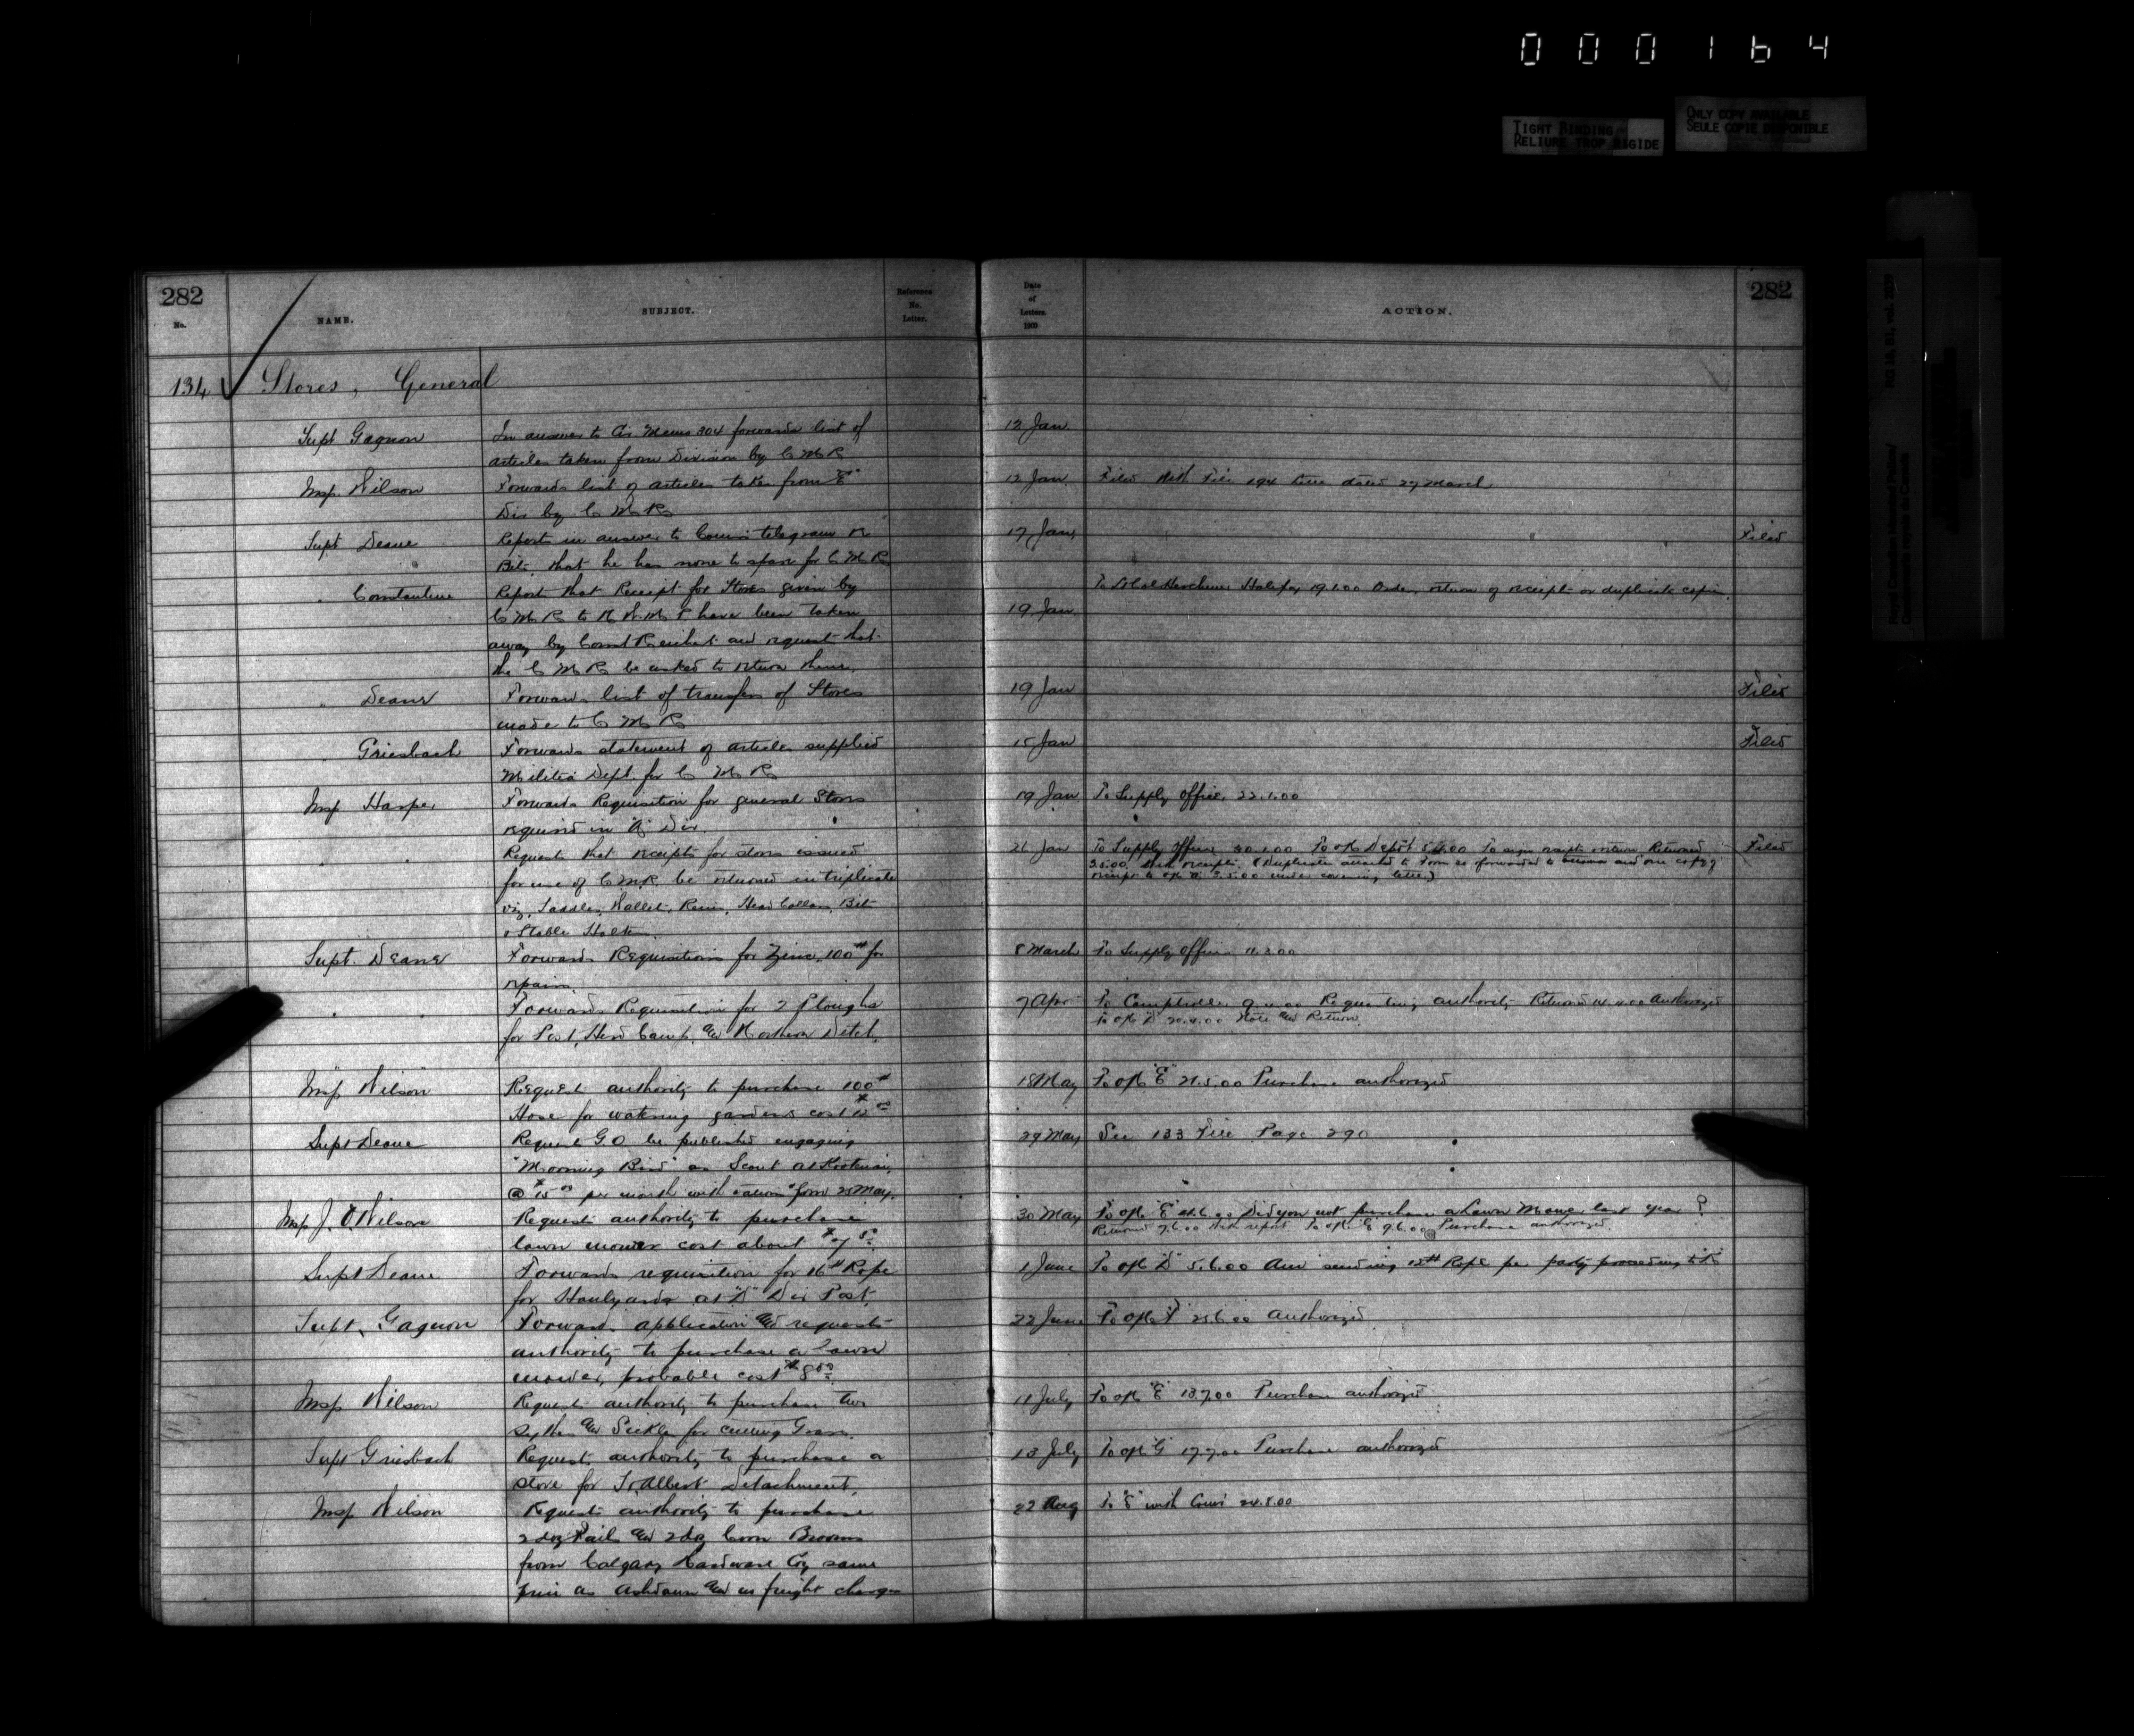 000164
TIGHT BINDING
RELIURE TROP RIGIDE
ONLY COPY AVAILABLE
SEULE COPIE DISPONIBLE
RG 18, B1, vol. 2029
282
No.
NAME.
SUBJECT.
Reference
No.
Letter.
Date
of
Letters.
1900
ACTION.
282
134 Stores, General
Supt Gagnon In answer to Cir Memo 304 forwards list of 12 Jan
articles taken from Division by C M R
Insp. Wilson Forwards list of articles taken from "E" 12 Jan Filed with File 194 dated 27 March
Div by C M R
Supt Deane Reports in answer to Comrs telegram re 17 Jan Filed
Bits, that he has none to spare for C M R
" Constantine Report that Receipt for Stores given by To Herchmer Halifax 19.1.00 return of receipts or duplicate copies
C M R to N.W.M.P have been taken 19 Jan
away by Const and request that
the C M R be asked to return them.
" Deane Forwards list of transfers of Stores 19 Jan Filed
made to C M R
" Griesbach Forwards statement of articles supplied 15 Jan Filed
Militia Dept. for C M R
Insp Harper Forwards Requisition for general Stores 19 Jan To Supply Officer 22.1.00
required in Div.
" " Request that receipts for stores issued 26 Jan To Supply Officer 30.1.00 To sign receipts & return Returned Filed
for use of C.M.R. be returned in triplicate 3.5.00 with receipts. (Duplicates attached to Form forwarded to and one copy of
viz, Saddles, Wallets, Reins, Head Collars, Bits receipt to o/c 3.5.00 under covering letter)
& Stable Halters.
Supt. Deane Forwards Requisitions for Zinc, 100# for 8 March To Supply Officer
repairs.
" " Forwards Requisition for 2 Ploughs 7 Apr To Comptroller Requesting authority Returned 14.4.00 Authorized
for Post, Herd Camp, & Northern Detch. To o/c "K" 20.4.00 Note and Return.
Insp Wilson Request authority to purchase 100# 18 May To o/c "E" 21.5.00 Purchase authorized
Hose for watering gardens cost
Supt Deane Request G.O be published engaging 29 May See 133 File Page 290
"Morning Bird" as Scout at Kootenai,
@ $15.00 per month with rations from 25 May.
Insp J. O Wilson Request authority to purchase 30 May To o/c "E" Did you not purchase a Lawn Mower last year?
lawn mower cost about Returned 7.6.00 with report. To o/c "E" 9.6.00 Purchase authorized.
Supt Deane Forwards requisition for 16# Rope 1 June To o/c 5.6.00 Am sending Rope per party proceeding to
for Haulyards at Div Post.
Supt. Gagnon Forwards application and requests 22 June To o/c "F" 25.6.00 Authorized
authority to purchase a lawn
mower, probable cost
Insp Wilson Request authority to purchase two 11 July To o/c "E" 13.7.00 Purchase authorized
Scythes and Sickles for cutting Grass.
Supt Griesbach Request authority to purchase a 13 July To o/c "G" 17.7.00 Purchase authorized
stove for St Albert Detachment.
Insp Wilson Request authority to purchase 22 Aug To "E" with 24.8.00
2 doz Pails and 2 doz Corn Brooms
from Calgary Hardware Coy same
price as Ashdown and no freight charges